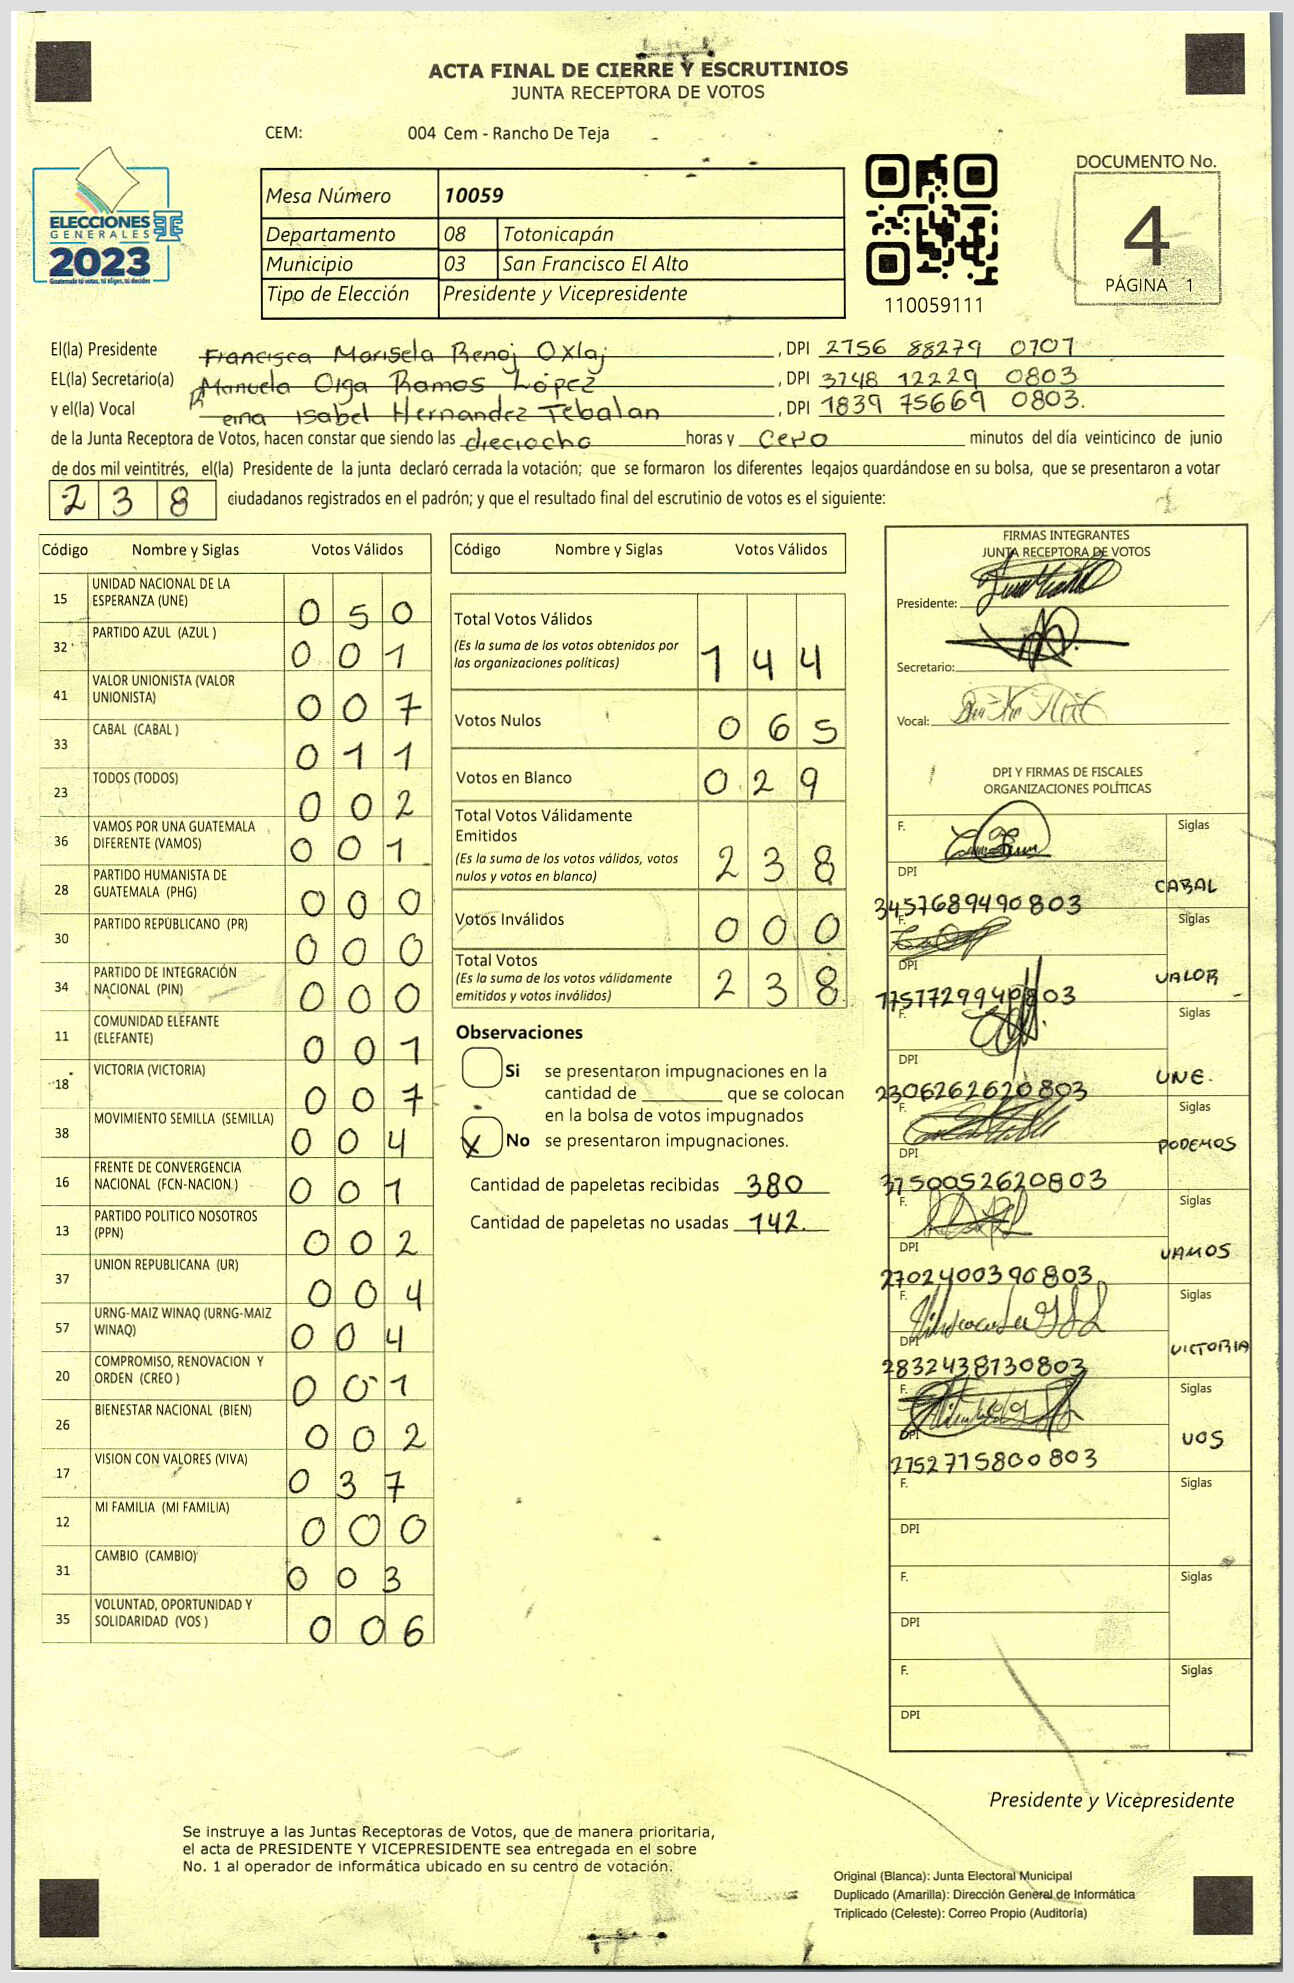 ACTA FINAL DE CIERRE Y ESCRUTINIOS
JUNTA RECEPTORA DE VOTOS
CEM: 004 Cem - Rancho De Teja
ELECCIONES
GENERALES
2023
Guatemala tú votas, tú eliges, tú decides
Mesa Número 10059
Departamento 08 Totonicapán
Municipio 03 San Francisco El Alto
Tipo de Elección Presidente y Vicepresidente
110059111
DOCUMENTO No.
4
PÁGINA 1
El(la) Presidente Francisca Marisela Renoj Oxlaj, DPI 2756 88279 0707
EL(la) Secretario(a) Manuela Olga Ramos López, DPI 3748 12229 0803
y el(la) Vocal Isabel Hernandez Tebalan, DPI 1839 75669 0803.
de la Junta Receptora de Votos, hacen constar que siendo las dieciocho horas y cero minutos del día veinticinco de junio
de dos mil veintitrés, el(la) Presidente de la junta declaró cerrada la votación; que se formaron los diferentes legajos quardándose en su bolsa, que se presentaron a votar
238 ciudadanos registrados en el padrón; y que el resultado final del escrutinio de votos es el siguiente:
Código Nombre y Siglas Votos Válidos
15 UNIDAD NACIONAL DE LA ESPERANZA (UNE) 050
32 PARTIDO AZUL (AZUL ) 001
41 VALOR UNIONISTA (VALOR UNIONISTA) 007
33 CABAL (CABAL ) 011
23 TODOS (TODOS) 002
36 VAMOS POR UNA GUATEMALA DIFERENTE (VAMOS) 001
28 PARTIDO HUMANISTA DE GUATEMALA (PHG) 000
30 PARTIDO REPÚBLICANO (PR) 000
34 PARTIDO DE INTEGRACIÓN NACIONAL (PIN) 000
11 COMUNIDAD ELEFANTE (ELEFANTE) 001
18 VICTORIA (VICTORIA) 007
38 MOVIMIENTO SEMILLA (SEMILLA) 004
16 FRENTE DE CONVERGENCIA NACIONAL (FCN-NACION.) 001
13 PARTIDO POLITICO NOSOTROS (PPN) 002
37 UNION REPUBLICANA (UR) 004
57 URNG-MAIZ WINAQ (URNG-MAIZ WINAQ) 004
20 COMPROMISO, RENOVACION Y ORDEN (CREO ) 001
26 BIENESTAR NACIONAL (BIEN) 002
17 VISION CON VALORES (VIVA) 037
12 MI FAMILIA (MI FAMILIA) 000
31 CAMBIO (CAMBIO) 003
35 VOLUNTAD, OPORTUNIDAD Y SOLIDARIDAD (VOS ) 006
Código Nombre y Siglas Votos Válidos
Total Votos Válidos 144
(Es la suma de los votos obtenidos por
las organizaciones políticas)
Votos Nulos 065
Votos en Blanco 029
Total Votos Válidamente
Emitidos 238
(Es la suma de los votos válidos, votos
nulos y votos en blanco)
Votos Inválidos 000
Total Votos 238
(Es la suma de los votos válidamente
emitidos y votos inválidos)
Observaciones
Si se presentaron impugnaciones en la
cantidad de ________ que se colocan
en la bolsa de votos impugnados
X No se presentaron impugnaciones.
Cantidad de papeletas recibidas 380
Cantidad de papeletas no usadas 142.
FIRMAS INTEGRANTES
JUNTA RECEPTORA DE VOTOS
Presidente:
Secretario:
Vocal:
DPI Y FIRMAS DE FISCALES
ORGANIZACIONES POLÍTICAS
F. Siglas
DPI 3457689490803 CABAL
F. Siglas
DPI 1757729940803 VALOR
F. Siglas
DPI 2306262620803 UNE.
F. Siglas
DPI 3750052620803 PODEMOS
F. Siglas
DPI 2702400390803 VAMOS
F. Siglas
DPI 2832438730803 VICTORIA
F. Siglas
DPI 2752715800803 VOS
F. Siglas
DPI
F. Siglas
DPI
F. Siglas
DPI
Presidente y Vicepresidente
Se instruye a las Juntas Receptoras de Votos, que de manera prioritaria,
el acta de PRESIDENTE Y VICEPRESIDENTE sea entregada en el sobre
No. 1 al operador de informática ubicado en su centro de votación.
Original (Blanca): Junta Electoral Municipal
Duplicado (Amarilla): Dirección General de Informática
Triplicado (Celeste): Correo Propio (Auditoría)